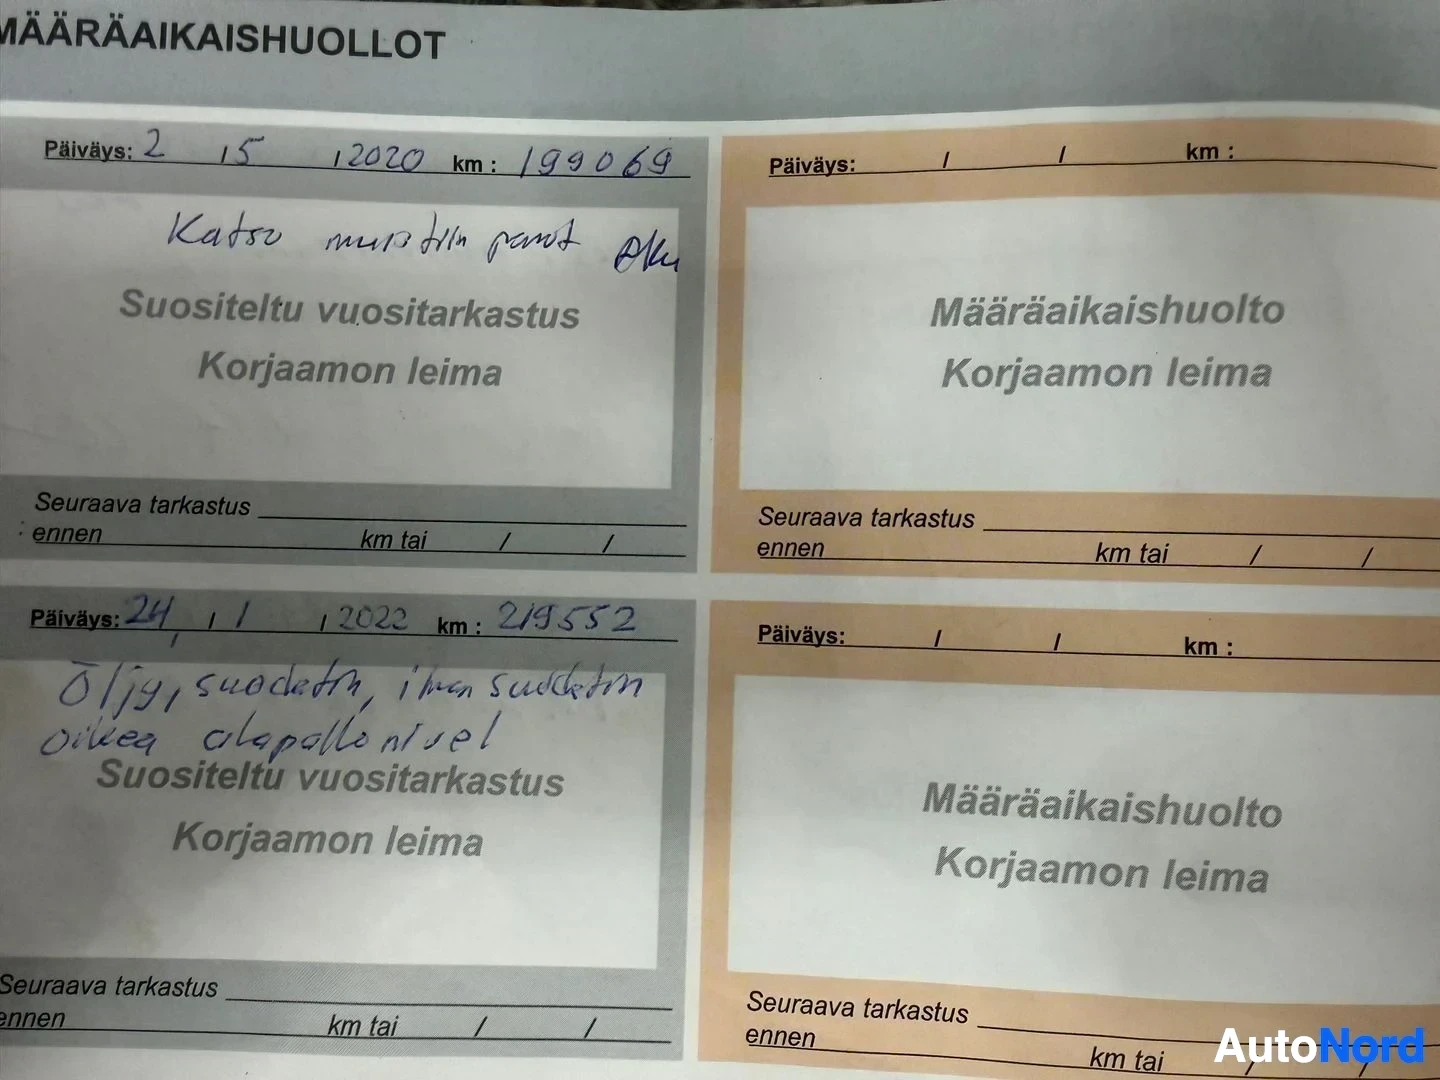 MÄÄRÄAIKAISHUOLLOT
Päiväys: 2 / 5 / 2020 km : 199069
Katso
Suositeltu vuositarkastus
Korjaamon leima
Seuraava tarkastus
ennen km tai / /
Päiväys: / / km :
Määräaikaishuolto
Korjaamon leima
Seuraava tarkastus
ennen km tai / /
Päiväys: 24 / 1 / 2022 km : 219552
Öljy, suodatin, ilman suodatin
oikea alapallonivel
Suositeltu vuositarkastus
Korjaamon leima
Seuraava tarkastus
ennen km tai / /
Päiväys: / / km :
Määräaikaishuolto
Korjaamon leima
Seuraava tarkastus
ennen km tai / /
AutoNord